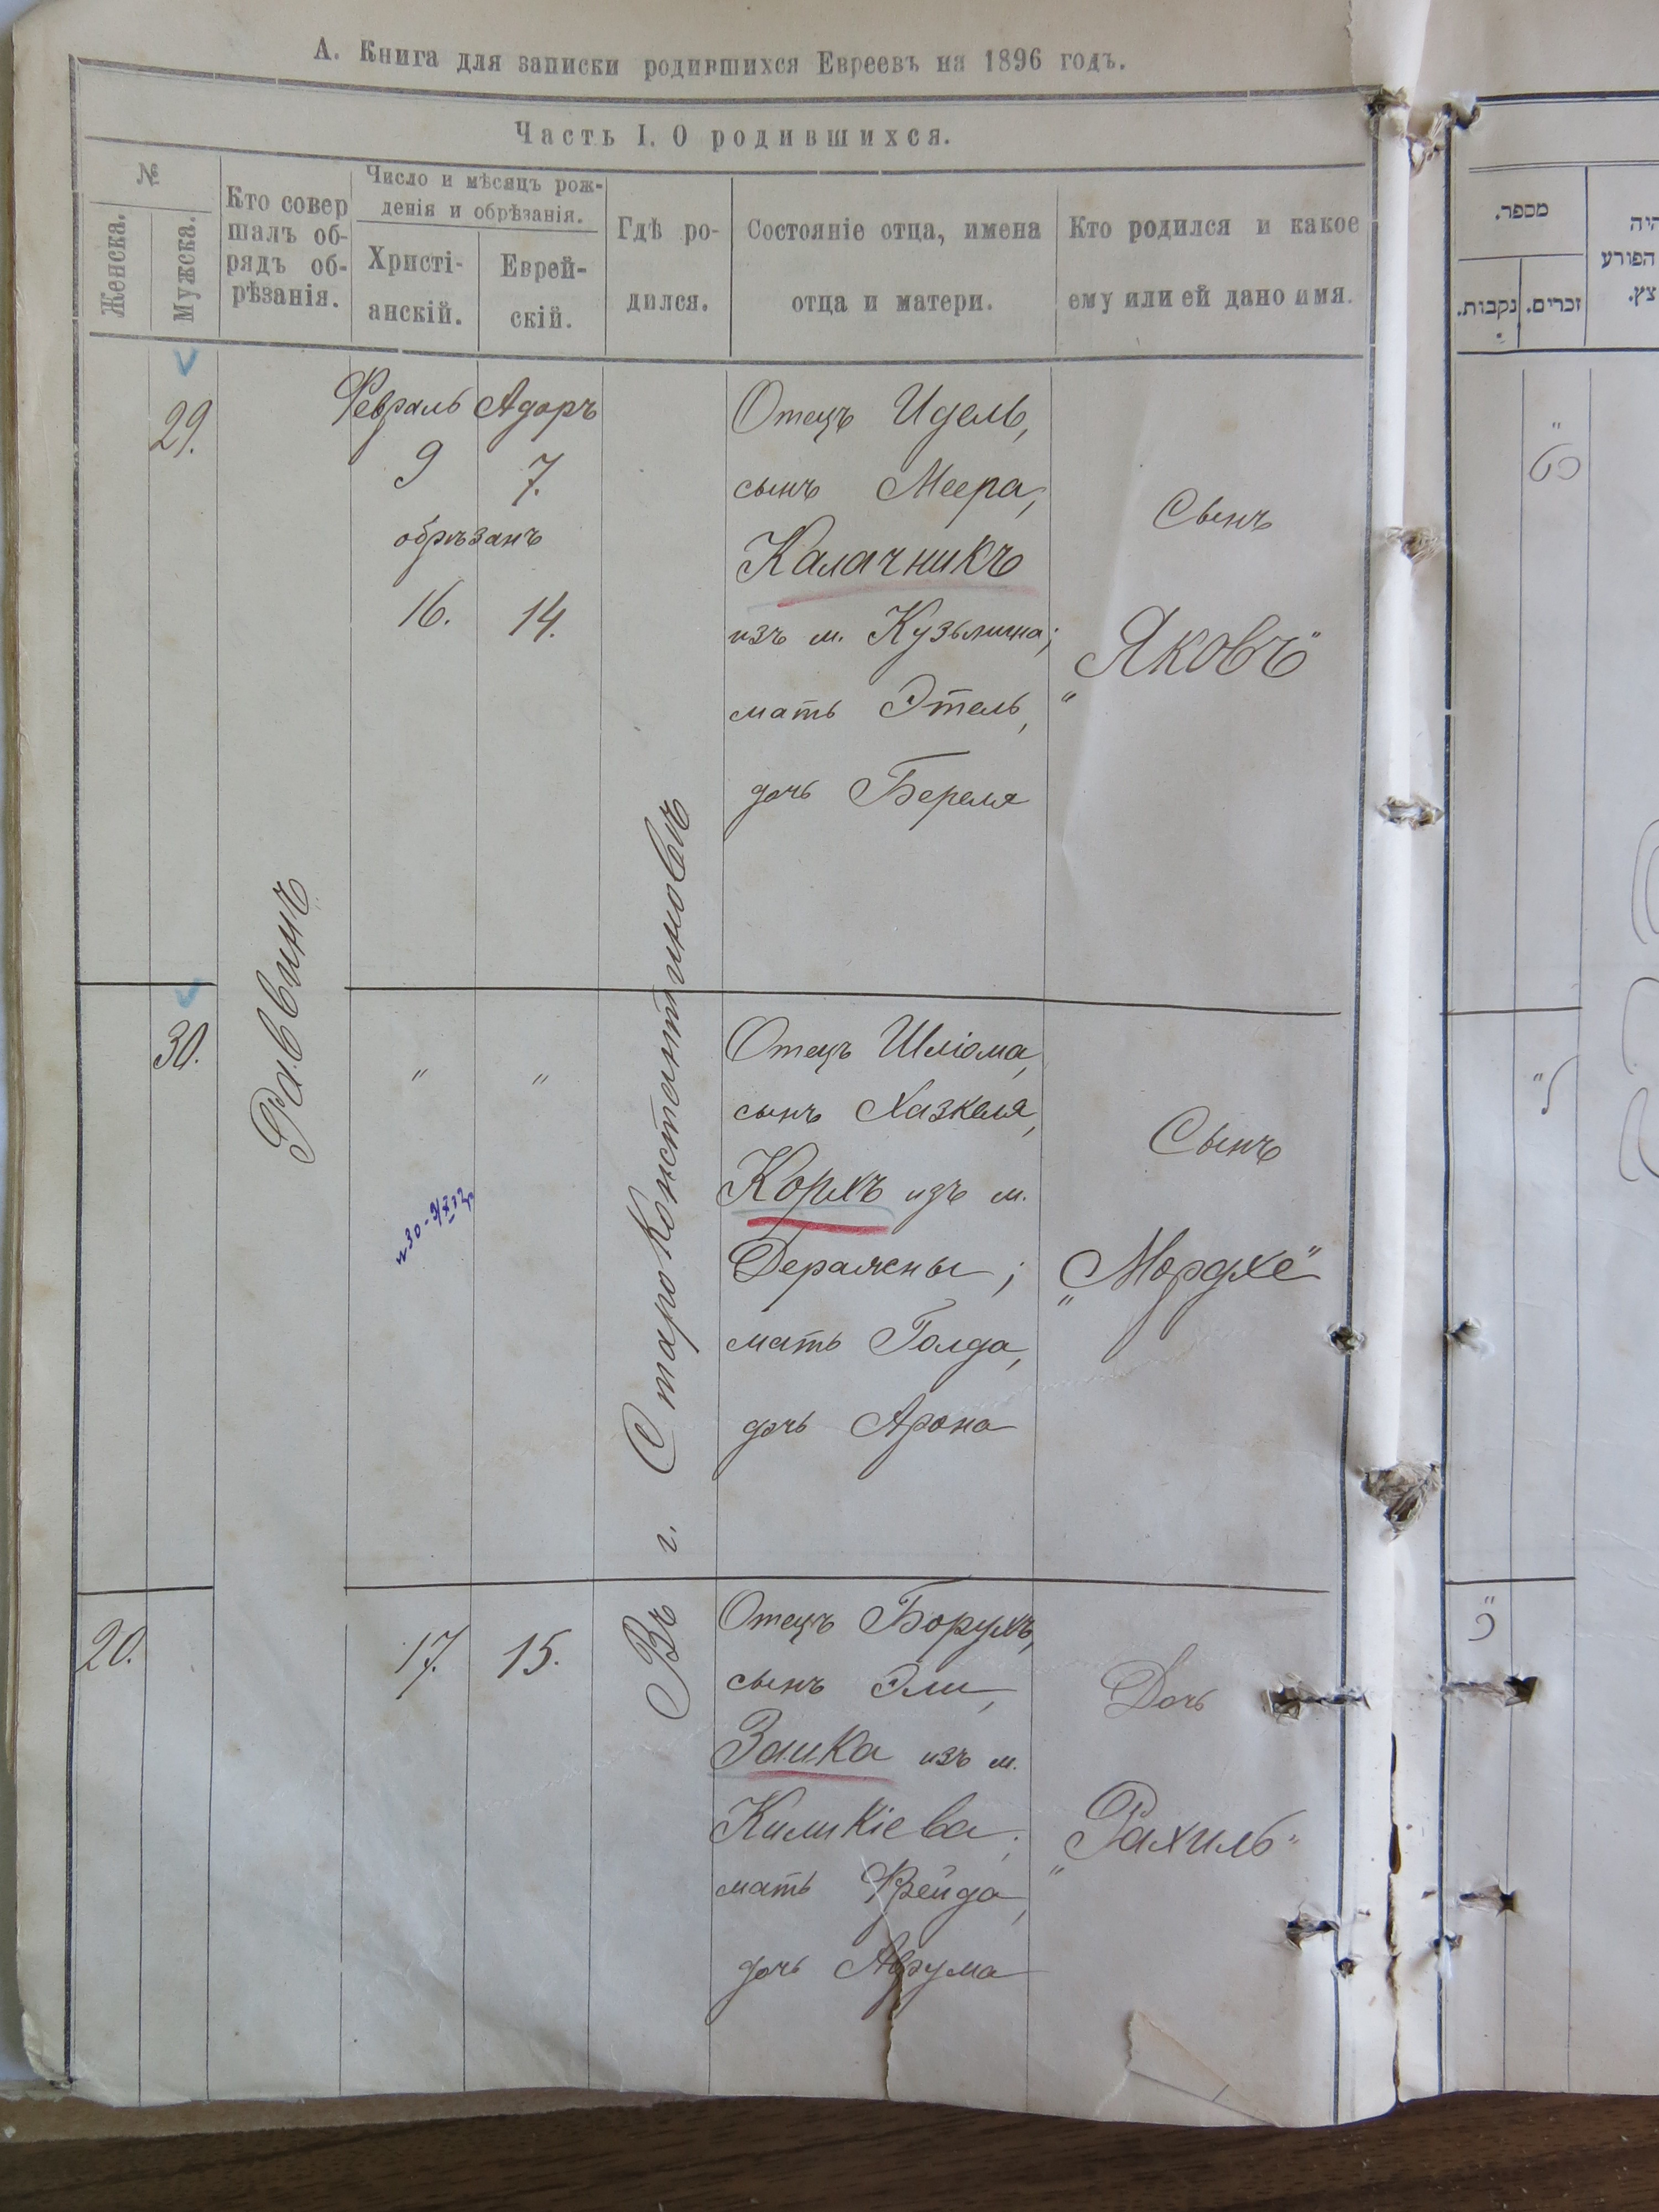 А. Книга для записки родившихся Евреевъ на 1896 годъ.
Часть I. О родившихся.
№
Женска.
Мужска.
Кто совер
шалъ об-
рядъ об-
рѣзанія.
Число и мѣсяцъ рож-
денія и обрѣзанія.
Христі-
анскій.
Еврей-
скій.
Гдѣ ро-
дился.
Состояніе отца, имена
отца и матери.
Кто родился и какое
ему или ей дано имя.
29.
Раввинъ
Февраль Адаръ
9 7.
обрѣзанъ
16. 14.
Въ г. Староконстантиновѣ
Отецъ Идель,
сынъ Меера,
Калачникъ
изъ м. Кузьмина;
мать Этель,
дочь Береля
Сынъ
"Яковъ"
30.
" "
Отецъ Шліома,
сынъ Хазкеля,
Корхъ изъ м.
Деражны;
мать Голда,
дочь Арона
Сынъ
"Мордхе"
20.
17. 15.
Отецъ Борухъ,
сынъ Эли,
Заика изъ м.
Киликіева;
мать Фрейда,
дочь Аврума
Дочь
"Рахиль"
מספר.
נקבות.
זכרים.
היה
הפורע
צץ.